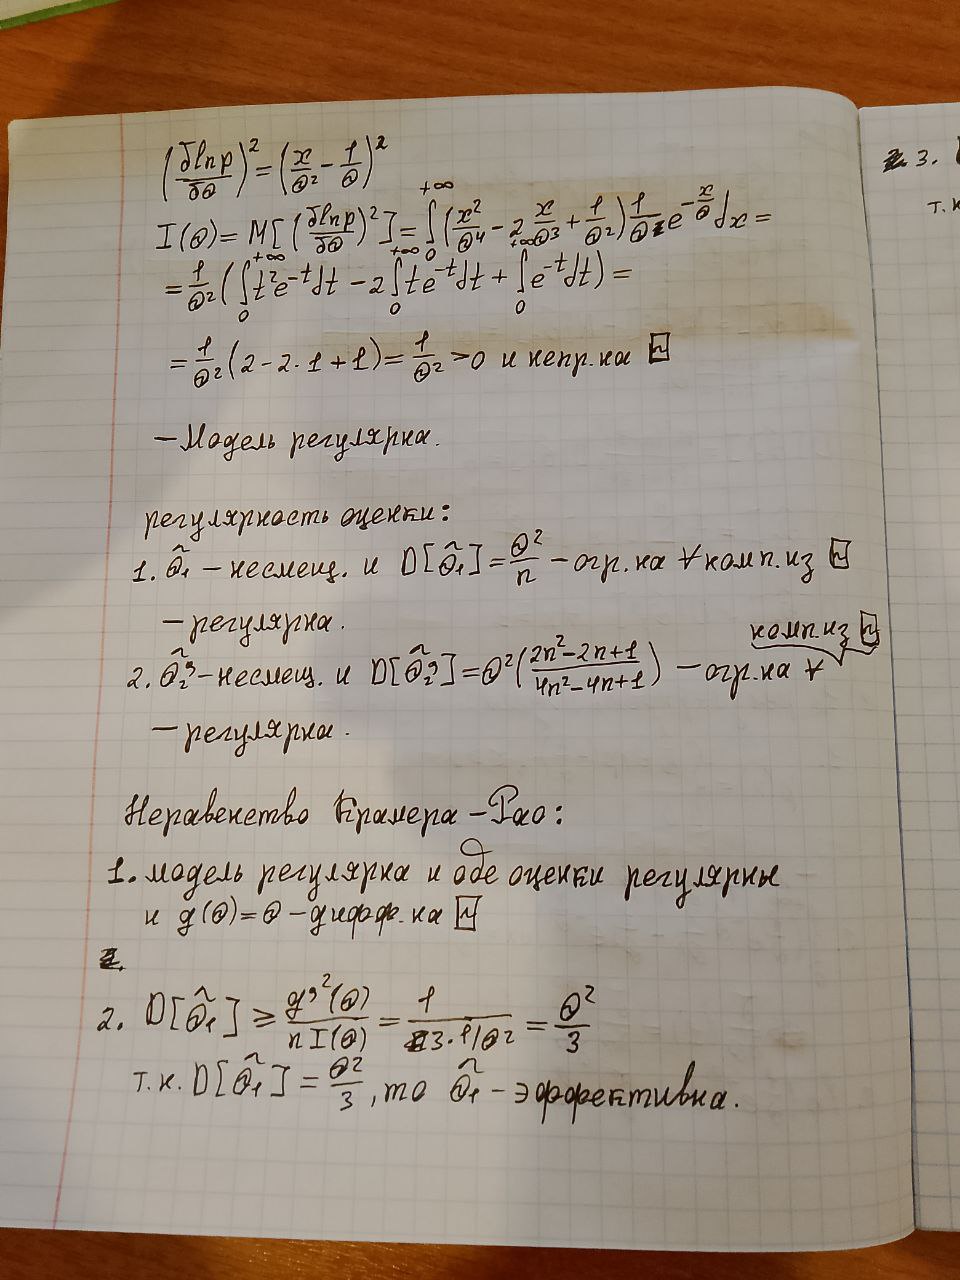 (δlnp/δΘ)² = (x/Θ² - 1/Θ)²
I(Θ) = M[(δlnp/δΘ)²] = ∫₀^{+∞} (x²/Θ⁴ - 2 x/Θ³ + 1/Θ²) 1/Θ e^{-x/Θ} dx =
= 1/Θ² (∫₀^{+∞} t²e^{-t}dt - 2 ∫₀^{+∞} te^{-t}dt + ∫₀^{+∞} e^{-t}dt) =
= 1/Θ² (2 - 2·1 + 1) = 1/Θ² >0 и непр. на
– Модель регулярна.
регулярность оценки:
1. Θ̂₁ – несмещ. и D[Θ̂₁] = Θ²/n – огр. на ∀ комп. из
– регулярна.
комп. из
2. Θ̂₂' – несмещ. и D[Θ̂₂'] = Θ²((2n²-2n+1)/(4n²-4n+1)) – огр. на ∀
– регулярна.
Неравенство Крамера – Рао:
1. модель регулярна и обе оценки регулярны
и g(Θ) = Θ – дифф. на
2. D[Θ̂₁] ≥ g'²(Θ)/(nI(Θ)) = 1/(3·1/Θ²) = Θ²/3
т.к. D[Θ̂₁] = Θ²/3, то Θ̂₁ – эффективна.
3.
т.к